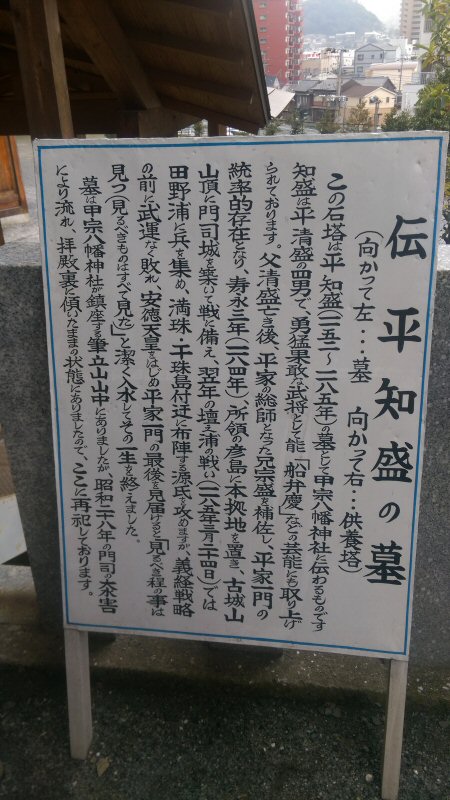 伝 平知盛の墓
(向かって左・・・墓 向かって右・・・供養塔)
この石塔は平知盛(一一五二～一一八五年)の墓として甲宗八幡神社に伝わるものです
知盛は平清盛の四男で、勇猛果敢な武将として能「船弁慶」などの芸能にも取り上げ
られております。父清盛亡き後、平家の総師となった宗盛を補佐し、平家一門の
統率的存在となり、寿永三年(一一八四年)、所領の彦島に本拠地を置き、古城山
山頂に門司城を築いて戦に備え、翌年の壇ノ浦の戦い(一一八五年三月二十四日)では
田野浦に兵を集め、満珠・干珠島付近に布陣する源氏を攻めますが、義経戦略
の前に武運なく敗れ、安徳天皇をはじめ平家一門の最後を見届けると「見るべき程の事は
見つ(見るべきものはすべて見た)」と潔く入水してその一生を終えました。
墓は甲宗八幡神社が鎮座する筆立山山中にありましたが、昭和二八年の門司の大水害
により流れ、拝殿裏に傾いたままの状態にありましたので、ここに再祀しております。